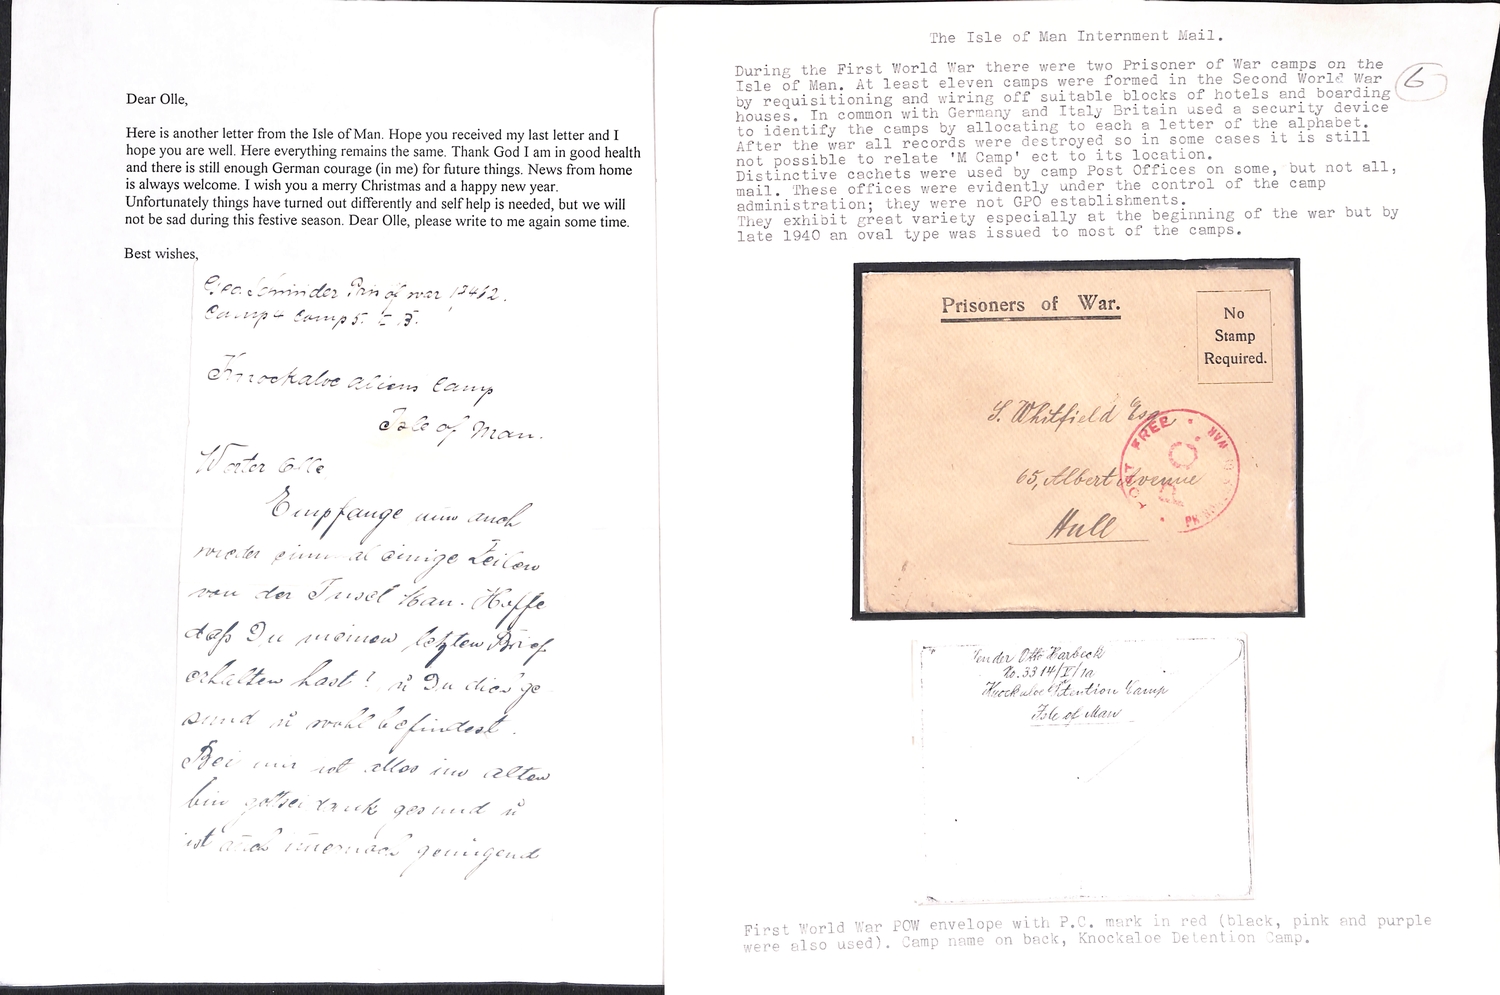 Dear Olle,
Here is another letter from the Isle of Man. Hope you received my last letter and I
hope you are well. Here everything remains the same. Thank God I am in good health
and there is still enough German courage (in me) for future things. News from home
is always welcome. I wish you a merry Christmas and a happy new year.
Unfortunately things have turned out differently and self help is needed, but we will
not be sad during this festive season. Dear Olle, please write to me again some time.
Best wishes,
Pris of war 13412.
Camp 4 Comp 5.
Knockaloe aliens Camp
Isle of Man.
Werter Olle
Empfange nun auch
wieder einmal einige Zeilen
von der Insel Man. Hoffe
daß Du meinen letzten Brief
erhalten hast! ü Du dies ge
sund ü wohl befindest.
Bei mir ist alles im alten
bin gottsei dank gesund ü
ist auch immernoch genügend
The Isle of Man Internment Mail.
6
During the First World War there were two Prisoner of War camps on the
Isle of Man. At least eleven camps were formed in the Second World War
by requisitioning and wiring off suitable blocks of hotels and boarding
houses. In common with Germany and Italy Britain used a security device
to identify the camps by allocating to each a letter of the alphabet.
After the war all records were destroyed so in some cases it is still
not possible to relate 'M Camp' ect to its location.
Distinctive cachets were used by camp Post Offices on some, but not all,
mail. These offices were evidently under the control of the camp
administration; they were not GPO establishments.
They exhibit great variety especially at the beginning of the war but by
late 1940 an oval type was issued to most of the camps.
Prisoners of War.
No
Stamp
Required.
S. Whitfield Esq
65, Albert Avenue
Hull
POST FREE
P.C.
WAR
Sender Otto Harbeck
No. 3314/V/1a
Knockaloe Detention Camp
Isle of Man
First World War POW envelope with P.C. mark in red (black, pink and purple
were also used). Camp name on back, Knockaloe Detention Camp.